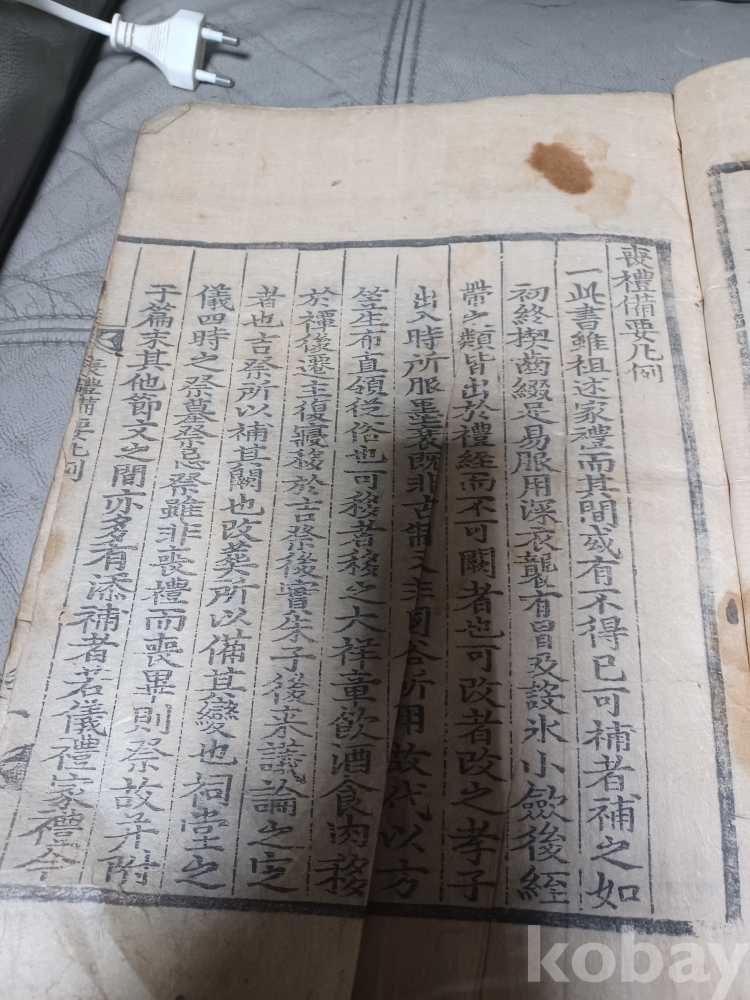 喪禮備要凡例
一此書雖祖述家禮而其間或有不得已可補者補之如
初終楔齒綴足易服用深衣襲有冒及設氷小斂後絰
帶之類皆出於禮經而不可闕者也可改者改之孝子
出入時所服墨衰旣非古制又非國俗所用故代以方
笠生布直領從俗也可移者移之大祥章飮酒食肉移
於禫後遷主復寢移於吉祭後實朱子後來議論之定
者也吉祭所以補其闕也改葬所以備其變也祠堂之
儀四時之祭墓祭忌祭雖非喪禮而喪畢則祭故并附
于篇末其他節文之間亦多有添補者若儀禮家禮今
喪禮備要凡例
kobay